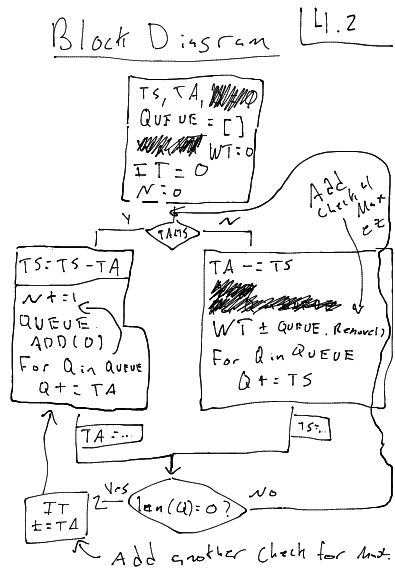 Block Diagram
4.2
TS, TA,
QUEUE = []
WT=0
IT = 0
N = 0
Y
TA<TS
N
Add
check 4
TS = TS - TA
N += 1
QUEUE.
ADD(0)
For Q in QUEUE
Q += TA
TA -= TS
WT ± QUEUE. Remove()
For Q in QUEUE
Q += TS
TA = ...
TS = ...
Yes
len(Q)=0?
NO
IT
±= TA
Add another check for